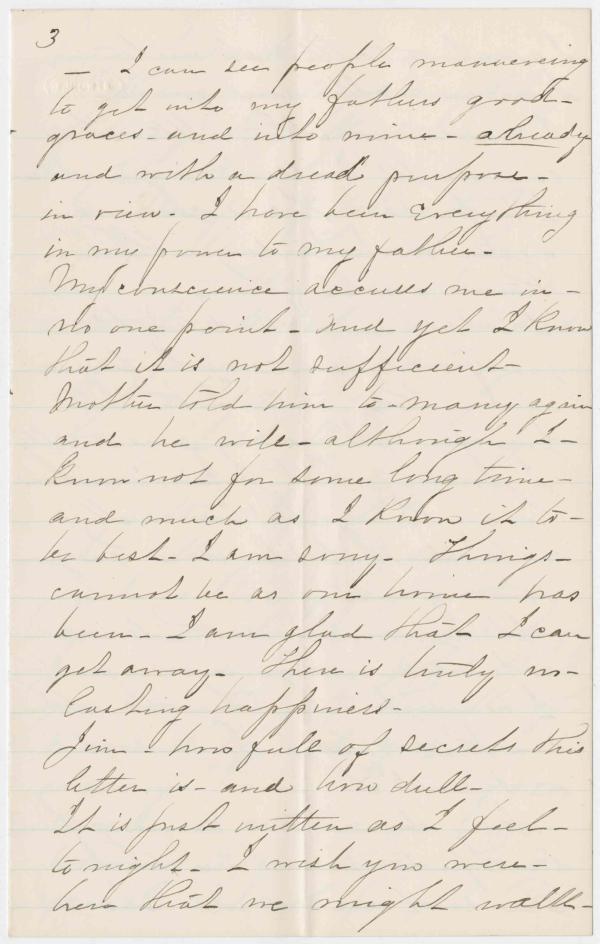 3
— I can see people manuvering
to get into my fathers good-
graces - and into mine - already
and with a dread purpose -
in view - I have been everything
in my power to my father -
My conscience accuses me in -
no one point - and yet I know
that it is not sufficient -
Mother told him to - marry again
and he will - although I -
know not for some long time -
and much as I know it to -
be best - I am sorry - Things -
cannot be as our home has
been - I am glad that I can
get away - There is truly no -
lasting happiness -
Jim - how full of secrets this
letter is - and how dull -
It is just written as I feel -
to night - I wish you were -
here that we might walk -